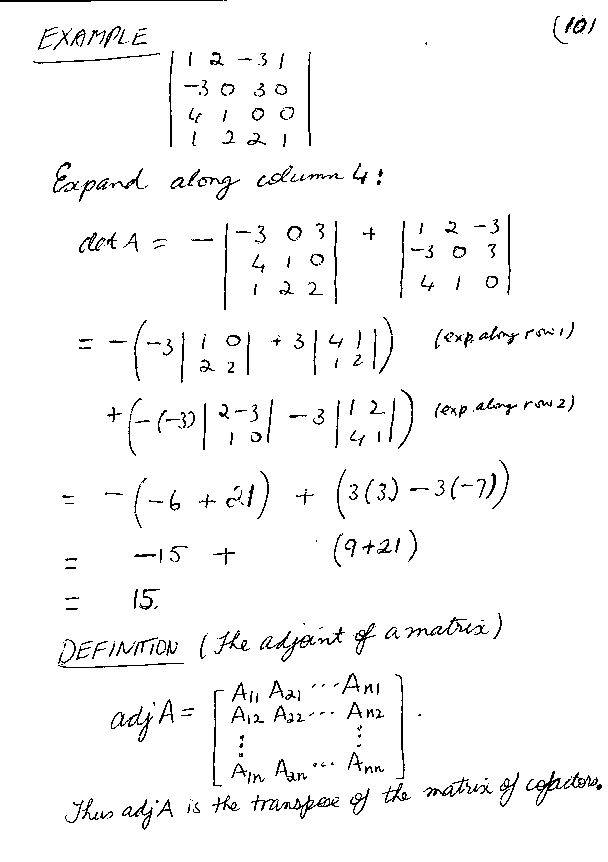 EXAMPLE (101
| 1 2 -3 1 |
| -3 0 3 0 |
| 4 1 0 0 |
| 1 2 2 1 |
Expand along column 4:
det A = - | -3 0 3 | + | 1 2 -3 |
| 4 1 0 | | -3 0 3 |
| 1 2 2 | | 4 1 0 |
= -(-3 | 1 0 | + 3 | 4 1 |) (exp. along row 1)
| 2 2 | | 1 2 |
+(-(-3) | 2 -3 | - 3 | 1 2 |) (exp. along row 2)
| 1 0 | | 4 1 |
= -(-6 + 21) + (3(3) - 3(-7))
= -15 + (9+21)
= 15.
DEFINITION (The adjoint of a matrix)
adj A = [ A11 A21 ... An1 ]
[ A12 A22 ... An2 ] .
[ ⋮ ⋮ ]
[ A1n A2n ... Ann ]
Thus adj A is the transpose of the matrix of cofactors.